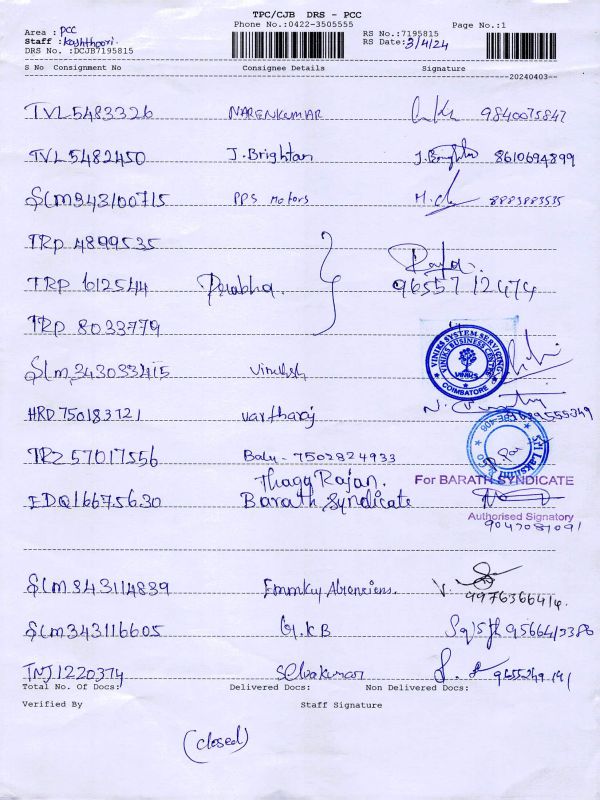 TPC/CJB DRS - PCC
Phone No.:0422-3505555
Page No.:1
Area : PCC
RS No.:7195815
Staff :
RS Date: 3/4/24
DRS No. :DCJB7195815
S No Consignment No Consignee Details Signature
20240403
TVL5483326 NARENKUMAR 9840075847
TVL5482450 J.Brighton J.Brighton 8610694899
SLM343100715 PPS Motors 8883883535
TRP 4899535
TRP 612544 Prabha. 9655712474
TRP 8033779
VINIKS SYSTEM SERVICING
VINIKS BUSINESS CENTRE
VINIKS
COIMBATORE
SLM343033415
HRD750183721
TRZ 57017556 Balu - 7502824933
Sri Lakshmi
ThagyRajan.
For BARATH SYNDICATE
EDQ16675630 Barath Syndicate
Authorised Signatory
9047087091
SLM343114839 9976366414.
SLM343116605 G.KB
TNJ1220374 Selvakumar
Total No. Of Docs: Delivered Docs: Non Delivered Docs:
Verified By Staff Signature
(closed)